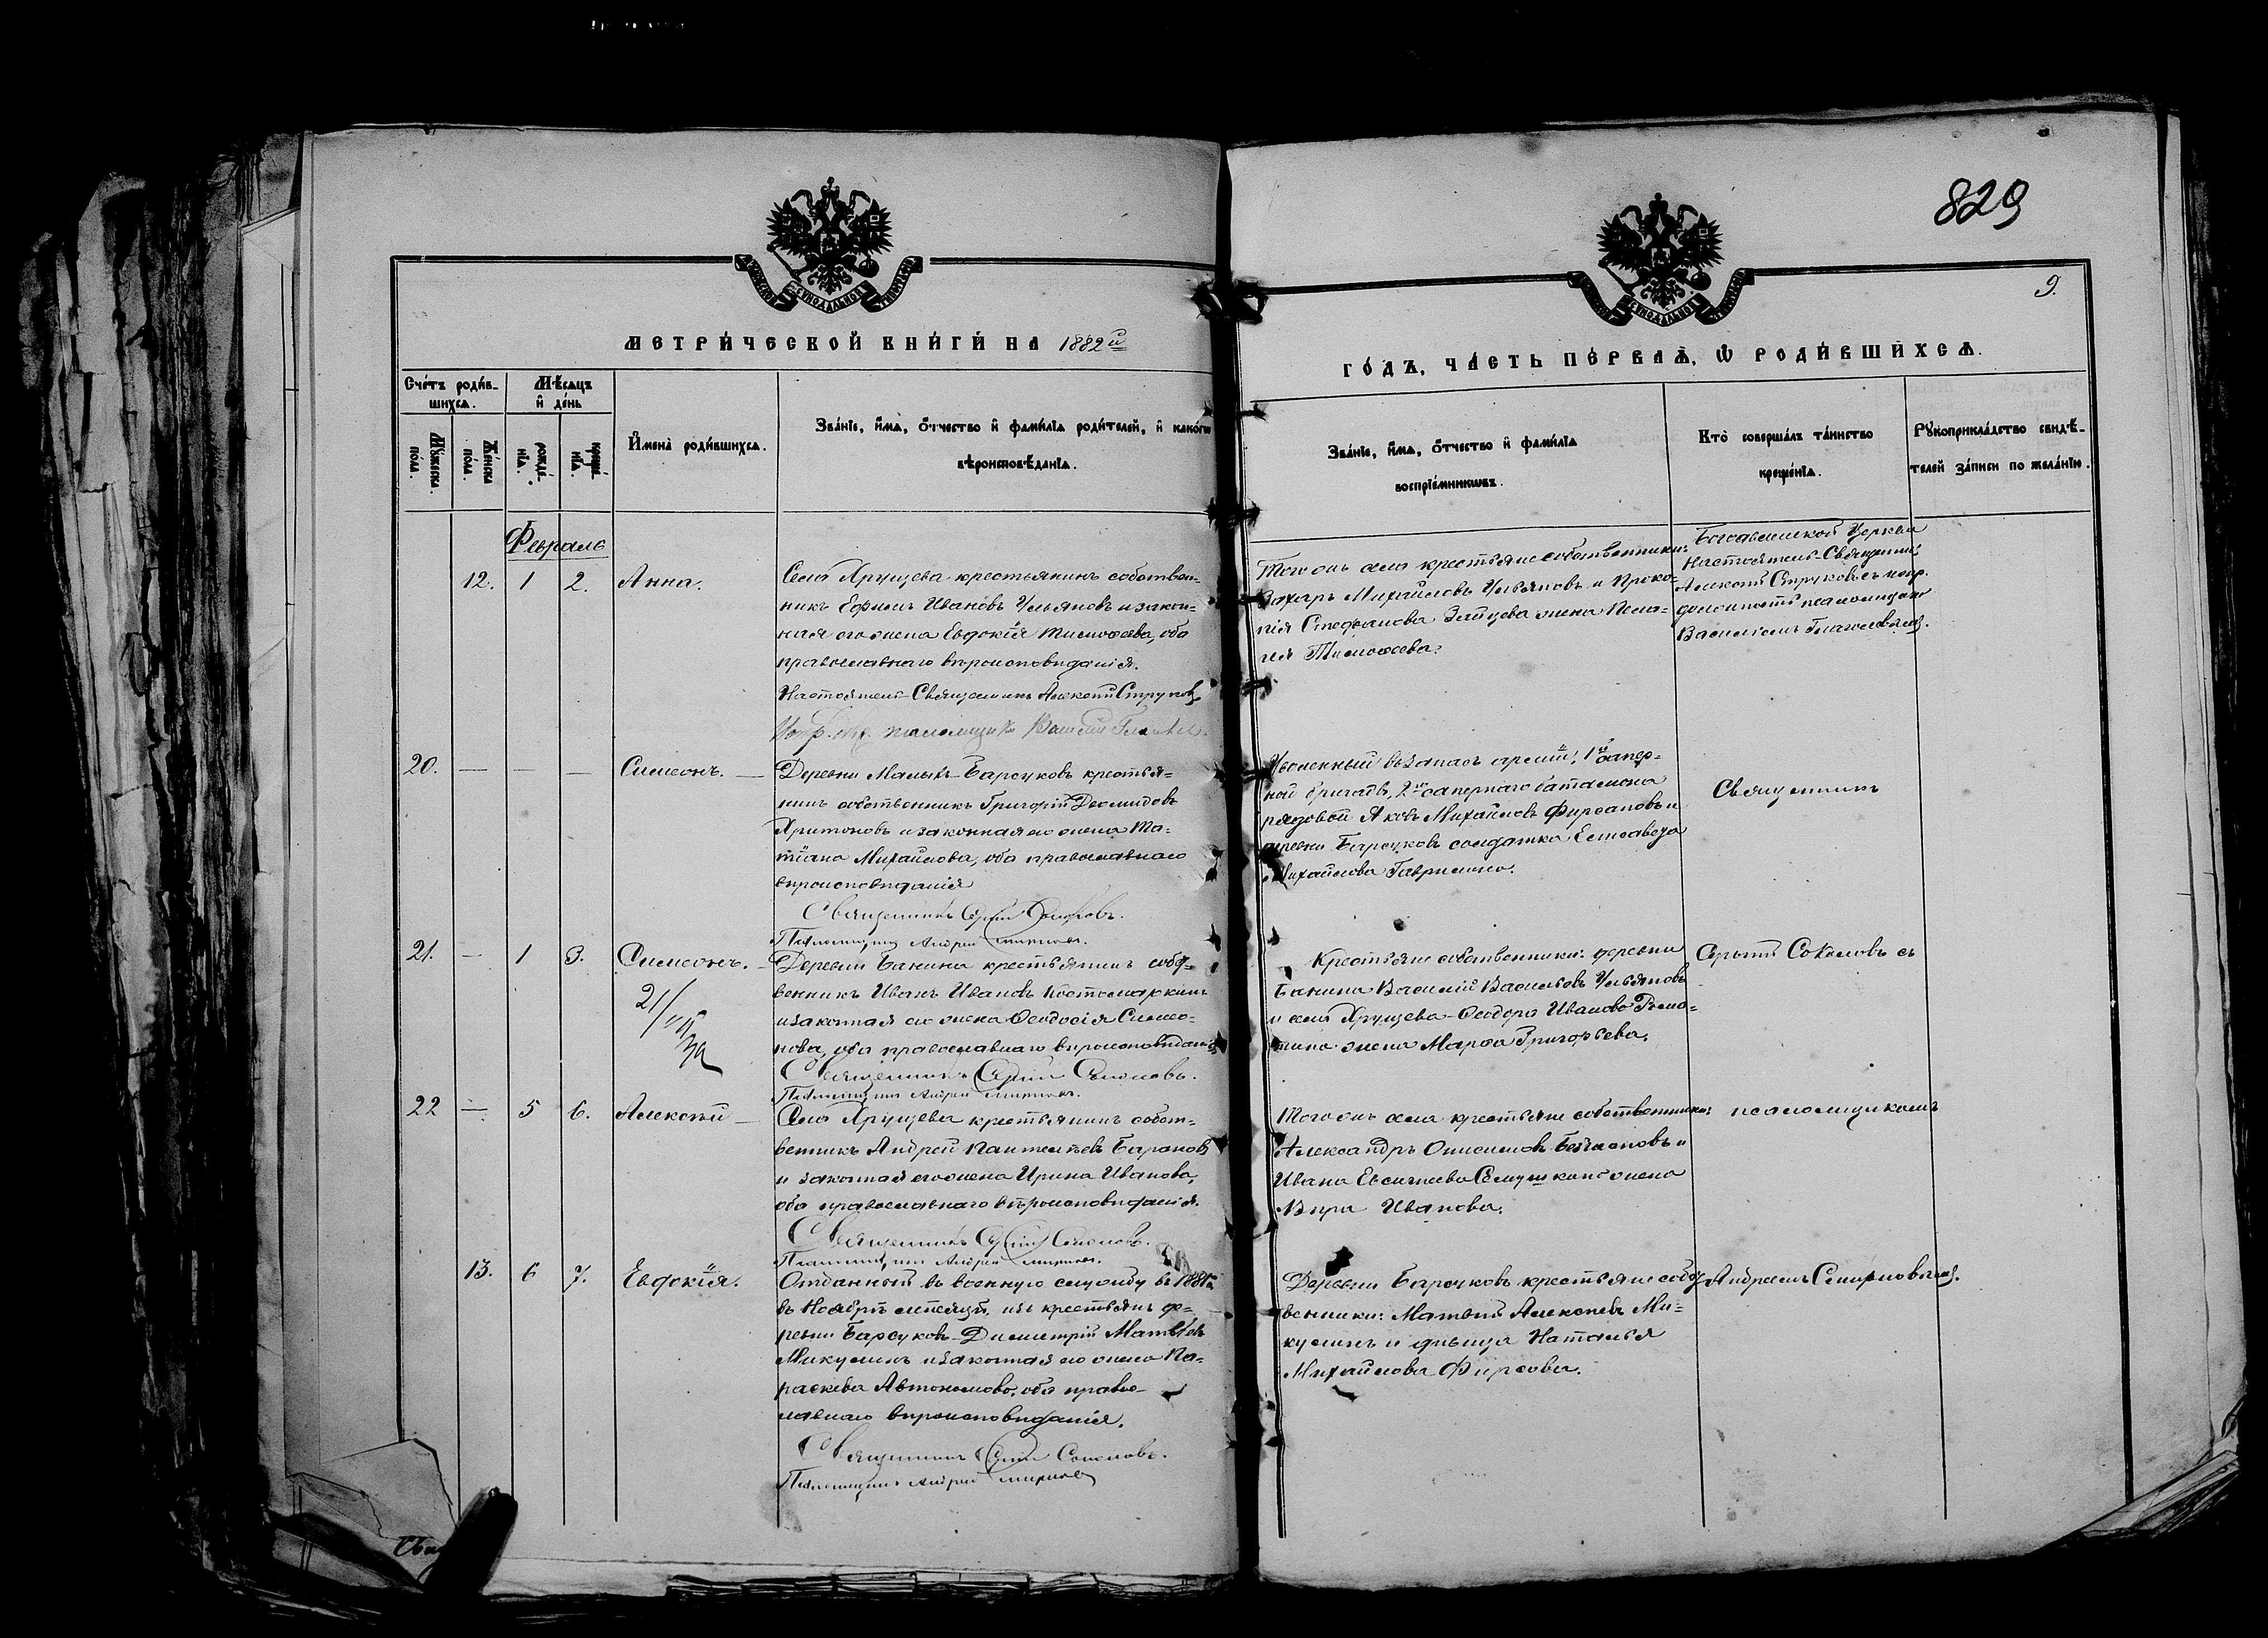 829
9.
МЕТРИ́ЧЕСКОЙ КНИ́ГИ НА 1882й
ГО́ДЪ, ЧА́СТЬ ПЕ́РВАЯ, Ѡ РОДИ́ВШИХСЯ.
Сче́тъ роди́в-
шихся.
Мѣ́сяцъ
и҆ де́нь
Му́жеска по́ла.
Же́нска по́ла.
рожде́нїя.
креще́нїя.
И҆мена̀ роди́вшихся.
Зва́нїе, и҆́мя, ѻ҆́тчество и҆ фами́лїя роди́телей, и҆ како́гѡ
вѣроисповѣ́данїя.
Зва́нїе, и҆́мя, ѻ҆́тчество и҆ фами́лїя
воспрїе́мникѡвъ.
Кто̀ соверша́лъ та́инство
креще́нїя.
Рꙋкоприкла́дство свидѣ́-
телей за́писи по жела́нїю.
Февраль
12. 1 2. Анна.
Села Хрущева крестьянинъ собствен-
никъ Ефимъ Ивановъ Ульяновъ и закон-
ная его жена Евдокія Тимоѳеева, оба
православнаго вѣроисповѣданія.
Настоятель-Священникъ Алексѣй Струковъ
псаломщика Василій
Того онъ села крестьяне собственники:
Захаръ Михайловъ Ульяновъ и Проко-
пія Стефанова Зайцева жена Пела-
гея Тимоѳеева.
Богоявленской Церкви
Настоятель-Священникъ
Алексѣй Струковъ съ испр.
должность псаломщика
Василіемъ Глаголевымъ.
20. — — — Симеонъ. —
Деревни Малыхъ-Барсуковъ крестья-
нинъ собственникъ Григорій Деомидовъ
Харитоновъ и законная его жена Та-
тіана Михайлова, оба православнаго
вѣроисповѣданія
Священникъ Сергій Соколовъ.
Псаломщикъ Андрей Смирновъ.
Уволенный въ запасъ арміи, 1й сапер-
ной бригады, 2го сапернаго баталіона
рядовой Яковъ Михайловъ Фирсановъ и
деревни Барсуковъ солдатка Елисавета
Михайлова Гаврилина.
Священникъ
21. — 1 3. Симеонъ. —
21/VII
Деревни Банина крестьянинъ собст-
венникъ Иванъ Ивановъ Костомаркинъ
и законная его жена Ѳеодосія Симео-
нова, оба православнаго вѣроисповѣданія
Священникъ Сергій Соколовъ.
Псаломщикъ Андрей Смирновъ.
Крестьяне собственники: деревни
Банина Василій Васильевъ Ульяновъ
и села Хрущева-Ѳеодора Иванова
жена Марѳа Григорьева.
Сергій Соколовъ съ
22 — 5 6. Алексѣй —
Села Хрущева крестьянинъ собст-
венникъ Андрей Пантелѣевъ Барановъ
и законная его жена Ирина Иванова,
оба православнаго вѣроисповѣданія.
Священникъ Сергій Соколовъ.
Псаломщикъ Андрей Смирновъ.
Того онъ села крестьяне собственники:
Александръ Онисимовъ и
Ивана Евсигнеева жена
Вѣра Иванова.
псаломщикомъ
13. 6 7. Евдокія.
Отданный въ военную службу въ 1881 г.
въ Ноябрѣ мѣсяцѣ, изъ крестьянъ де-
ревни Барсуковъ-Димитрій Матвѣевъ
Микулинъ и законная его жена Па-
раскева Автономова, оба право-
славнаго вѣроисповѣданія.
Священникъ Сергій Соколовъ.
Псаломщикъ Андрей Смирновъ
Деревни Барсуковъ крестьяне собст-
венники: Матвѣй Алексѣевъ Ми-
кулинъ и дѣвица Наталья
Михайлова Фирсова.
Андреемъ Смирновымъ.